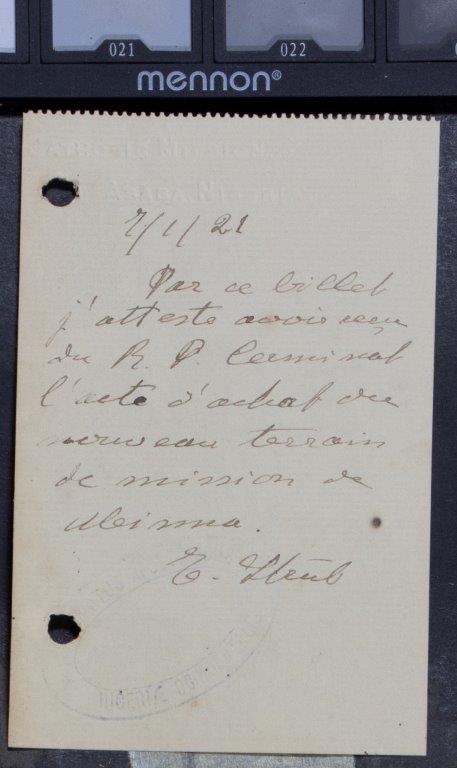 021
022
mennon®
7/1/21
Par ce billet
j'atteste avoir reçu
du R. P. Cerminat
l'acte d'achat du
nouveau terrain
de mission de
Minna.
E. Strub